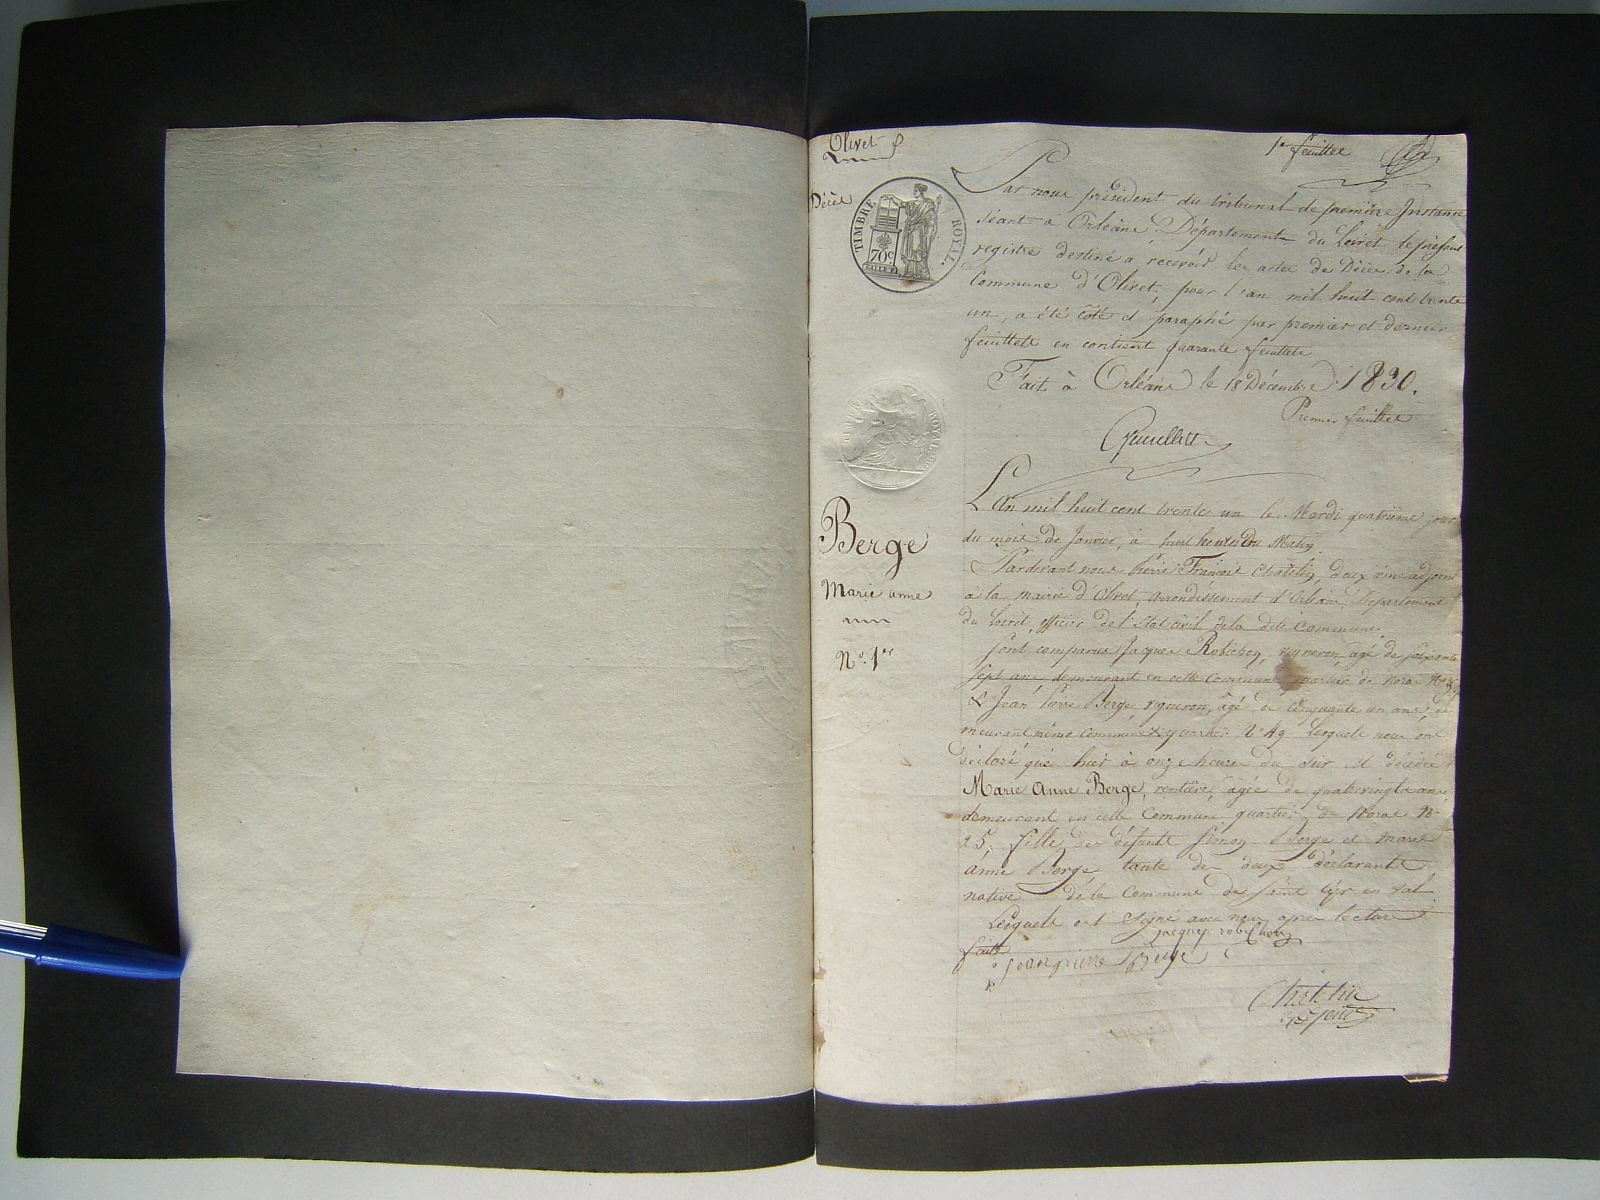 Olivet
1er feuillet
Décès
TIMBRE ROYAL.
70c
Par nous président du tribunal de première Instance
séant à Orléans, Département du Loiret le présent
registre destiné à recevoir les actes de Décès de la
Commune d'Olivet, pour l'an mil huit cent trente
un, a été coté et paraphé par premier et dernier
feuillets en contient quarante feuillets
Fait à Orléans le 18 Décembre 1830.
Premier feuillet
Berge
Marie anne
No. 1er
L'an mil huit cent trente un le Mardi quatrième jour
du mois de Janvier, à huit heures du Matin
Pardevant nous Pierre François Chatelin, deuxième adjoint
à la mairie d'Olivet, arrondissement d'Orléans, Département
du Loiret, officier de l'état civil de la dite Commune.
Sont comparus Jacques Robichon, vigneron, agé de soixante
sept ans demeurant en cette Commune, quartier de
& Jean Pierre Berge, vigneron, âgé de cinquante un ans, de
meurant même commune & quartier No 49 Lesquels nous ont
déclaré que hier à onze heures du soir est décédée
Marie Anne Berge, rentière, âgée de quatrevingts ans,
demeurant en cette Commune quartier de No
25, fille des défunts Simon Berge et marie
anne Berge tante des deux déclarants
native de la Commune de Saint Cyr en Val
Lesquels ont Signé avec nous après lecture
faite
jacques robichon
jean pierre Berge
Chatelin